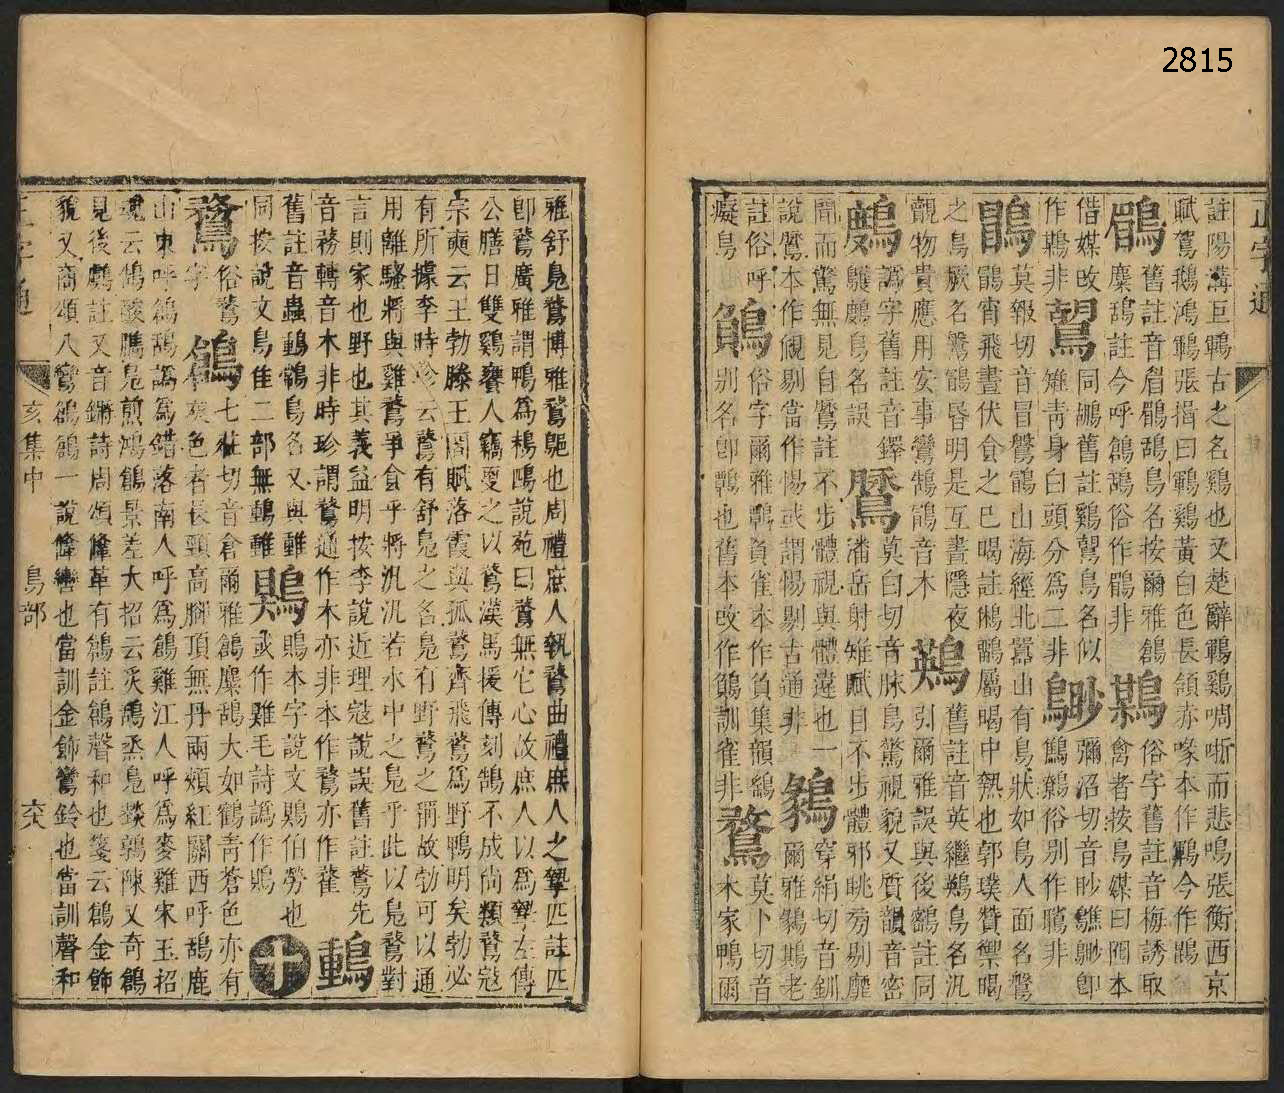 2815
正字通
註陽溝巨鶤古之名鷄也又楚辭鶤鷄啁哳而悲鳴張衡西京
賦駕鵝鴻鶤張揖曰鶤鷄黃白色長頷赤喙本作鶤今作鵾
鶥舊註音眉鶥鴰鳥名按爾雅鶬麋鴰註今呼鶬鴰俗作鶥非
俗字舊註音梅誘取禽者按鳥媒曰囮本
借媒改同鶘舊註鷄鴽鳥名似
彌沼切音眇鷦鵢卽
作鶤非
鶜莫報切音冒鷔鶜山海經北嚻山有鳥狀如鳥人面名鷔
鶜宵飛晝伏食之巳暍註鵂鶹屬暍中熱也郭璞贊禦暍
之鳥厥名鷔鶜昏明是互晝隱夜
覿物貴應用安事鸞鵠鶜音木
鶧舊註音英繼鶧鳥名汎
引爾雅誤與後鷂註同
鸌鸕鳥名誤
莫白切音脉鳥驚視貌又質韻音密
潘岳射雉賦目不步體邪眺旁剔靡
聞而驚無見自鷔註不步體視與體違也一
穿絹切音釧
說鷔本作覛剔當作惕或謂惕剔古通非
爾雅鶨鶀老
註俗呼癡鳥
俗字爾雅鶞負雀本作負集韻鷂
別名卽鶞也舊本改作鵿訓雀非
鶩莫卜切音木家鴨爾
雅舒鳧鶩博雅鶩鴄也周禮庶人執鶩曲禮庶人之摯匹註匹
卽鶩廣雅謂鴨爲楊鴟說苑曰鶩無它心故庶人以爲摯左傳
公膳日雙鷄饔人竊更之以鶩漢馬援傳刻鵠不成尚類鶩寇
宗奭云王勃滕王閣賦落霞與孤鶩齊飛鶩爲野鴨明矣勃必
有所據李時珍云鶩有舒鳧之名鳧有野鶩之稱故勃可以通
用離騷將與雞鶩爭食乎將汎汎若水中之鳧乎此以鳧鶩對
言則家也野也其義益明按李說近理寇說誤舊註鶩先
音務轉音木非時珍謂鶩通作木亦非本作鶩亦作䳱
舊註音蟲鶞鶴鳥名又與䨥
同按說文鳥隹二部無
鵙本字說文鵙伯勞也
或作雞毛詩譌作鵙
鶩俗鶩字
鶬七杠切音倉爾雅鶬麋鴰大如鶴青蒼色亦有
灰色者長頸高脚頂無丹兩頰紅關西呼鴰鹿
山東呼鶬鴰譌爲錯落南人呼爲鶬雞江人呼爲麥雞宋玉招
魂云鵠酸臇鳧煎鴻鶬景差大招云炙鴰烝鳧煔鶉陳又奇鶬
見後鸕註又音鏘詩周頌鞗革有鶬註鶬聲和也箋云鶬金飾
貌又商頌八鸞鶬鶬一說鞗轡也當訓金飾鸞鈴也當訓聲和
正字通
亥集中
鳥部